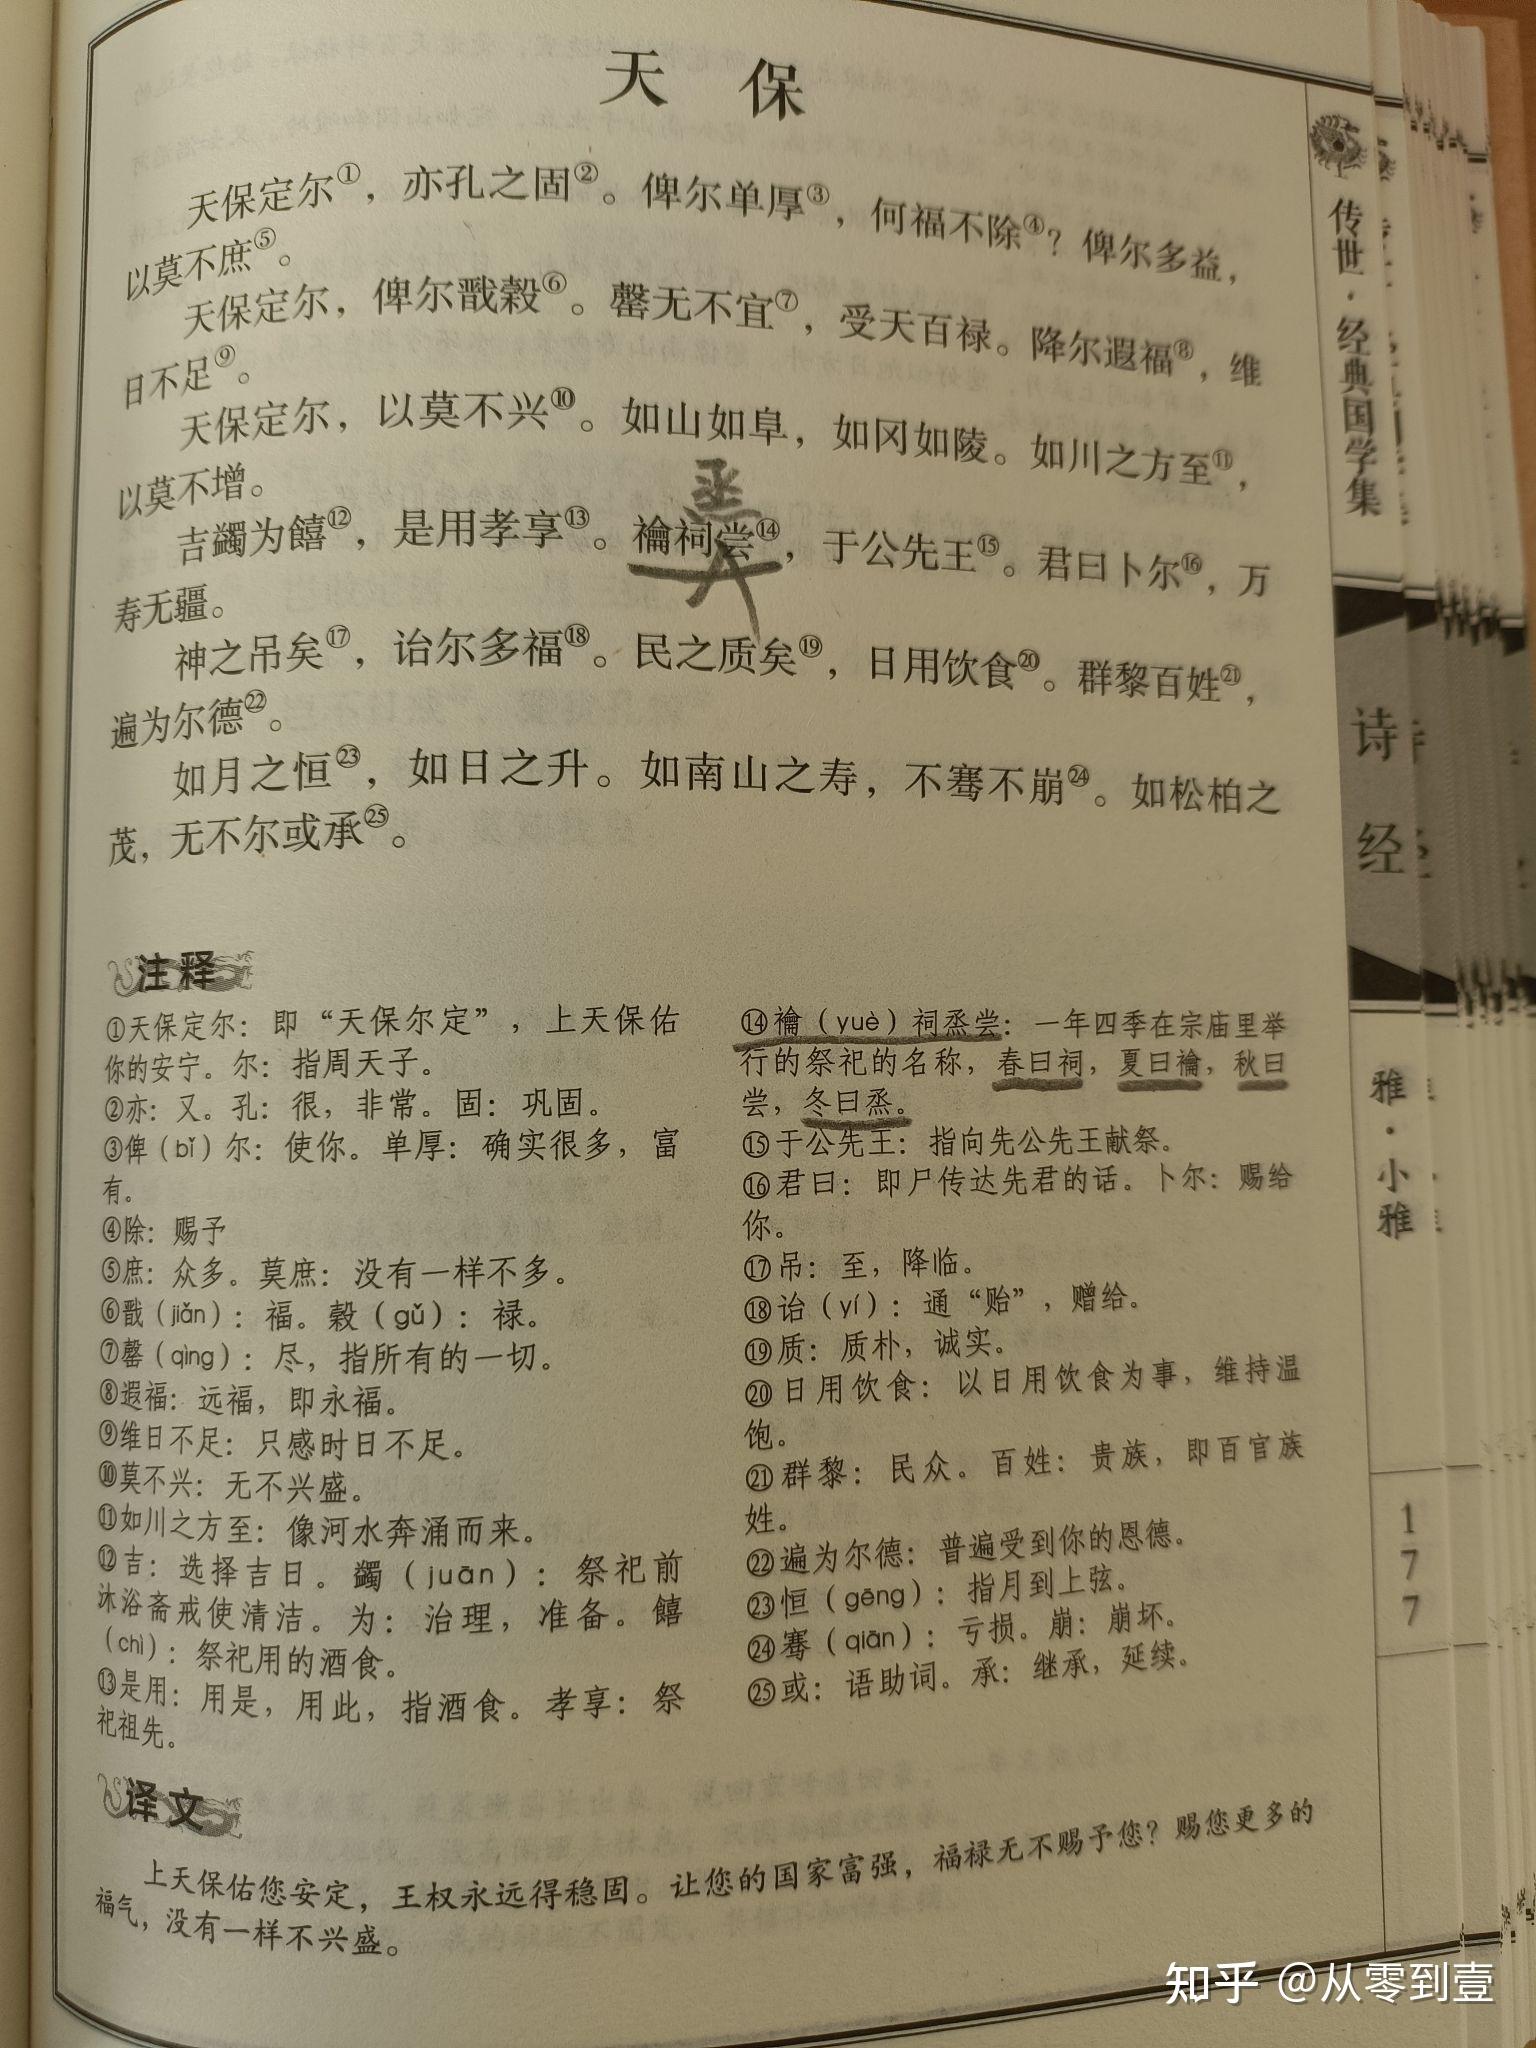 天 保
天保定尔①，亦孔之固②。俾尔单厚③，何福不除④？俾尔多益，
以莫不庶⑤。
天保定尔，俾尔戬榖⑥。罄无不宜⑦，受天百禄。降尔遐福⑧，维
日不足⑨。
天保定尔，以莫不兴⑩。如山如阜，如冈如陵。如川之方至⑪，
以莫不增。
吉蠲为饎⑫，是用孝享⑬。禴祠尝⑭，于公先王⑮。君曰卜尔⑯，万
烝
寿无疆。
神之吊矣⑰，诒尔多福⑱。民之质矣⑲，日用饮食⑳。群黎百姓㉑，
遍为尔德㉒。
如月之恒㉓，如日之升。如南山之寿，不骞不崩㉔。如松柏之
茂，无不尔或承㉕。
注释
①天保定尔：即“天保尔定”，上天保佑
你的安宁。尔：指周天子。
②亦：又。孔：很，非常。固：巩固。
③俾（bǐ）尔：使你。单厚：确实很多，富
有。
④除：赐予
⑤庶：众多。莫庶：没有一样不多。
⑥戬（jiǎn）：福。榖（gǔ）：禄。
⑦罄（qìng）：尽，指所有的一切。
⑧遐福：远福，即永福。
⑨维日不足：只感时日不足。
⑩莫不兴：无不兴盛。
⑪如川之方至：像河水奔涌而来。
⑫吉：选择吉日。蠲（juān）：祭祀前
沐浴斋戒使清洁。为：治理，准备。饎
（chì）：祭祀用的酒食。
⑬是用：用是，用此，指酒食。孝享：祭
祀祖先。
⑭禴（yuè）祠烝尝：一年四季在宗庙里举
行的祭祀的名称，春曰祠，夏曰禴，秋曰
尝，冬曰烝。
⑮于公先王：指向先公先王献祭。
⑯君曰：即尸传达先君的话。卜尔：赐给
你。
⑰吊：至，降临。
⑱诒（yí）：通“贻”，赠给。
⑲质：质朴，诚实。
⑳日用饮食：以日用饮食为事，维持温
饱。
㉑群黎：民众。百姓：贵族，即百官族
姓。
㉒遍为尔德：普遍受到你的恩德。
㉓恒（gēng）：指月到上弦。
㉔骞（qiān）：亏损。崩：崩坏。
㉕或：语助词。承：继承，延续。
译文
上天保佑您安定，王权永远得稳固。让您的国家富强，福禄无不赐予您？赐您更多的
福气，没有一样不兴盛。
传世·经典国学集
诗经
雅·小雅
177
知乎 @从零到壹